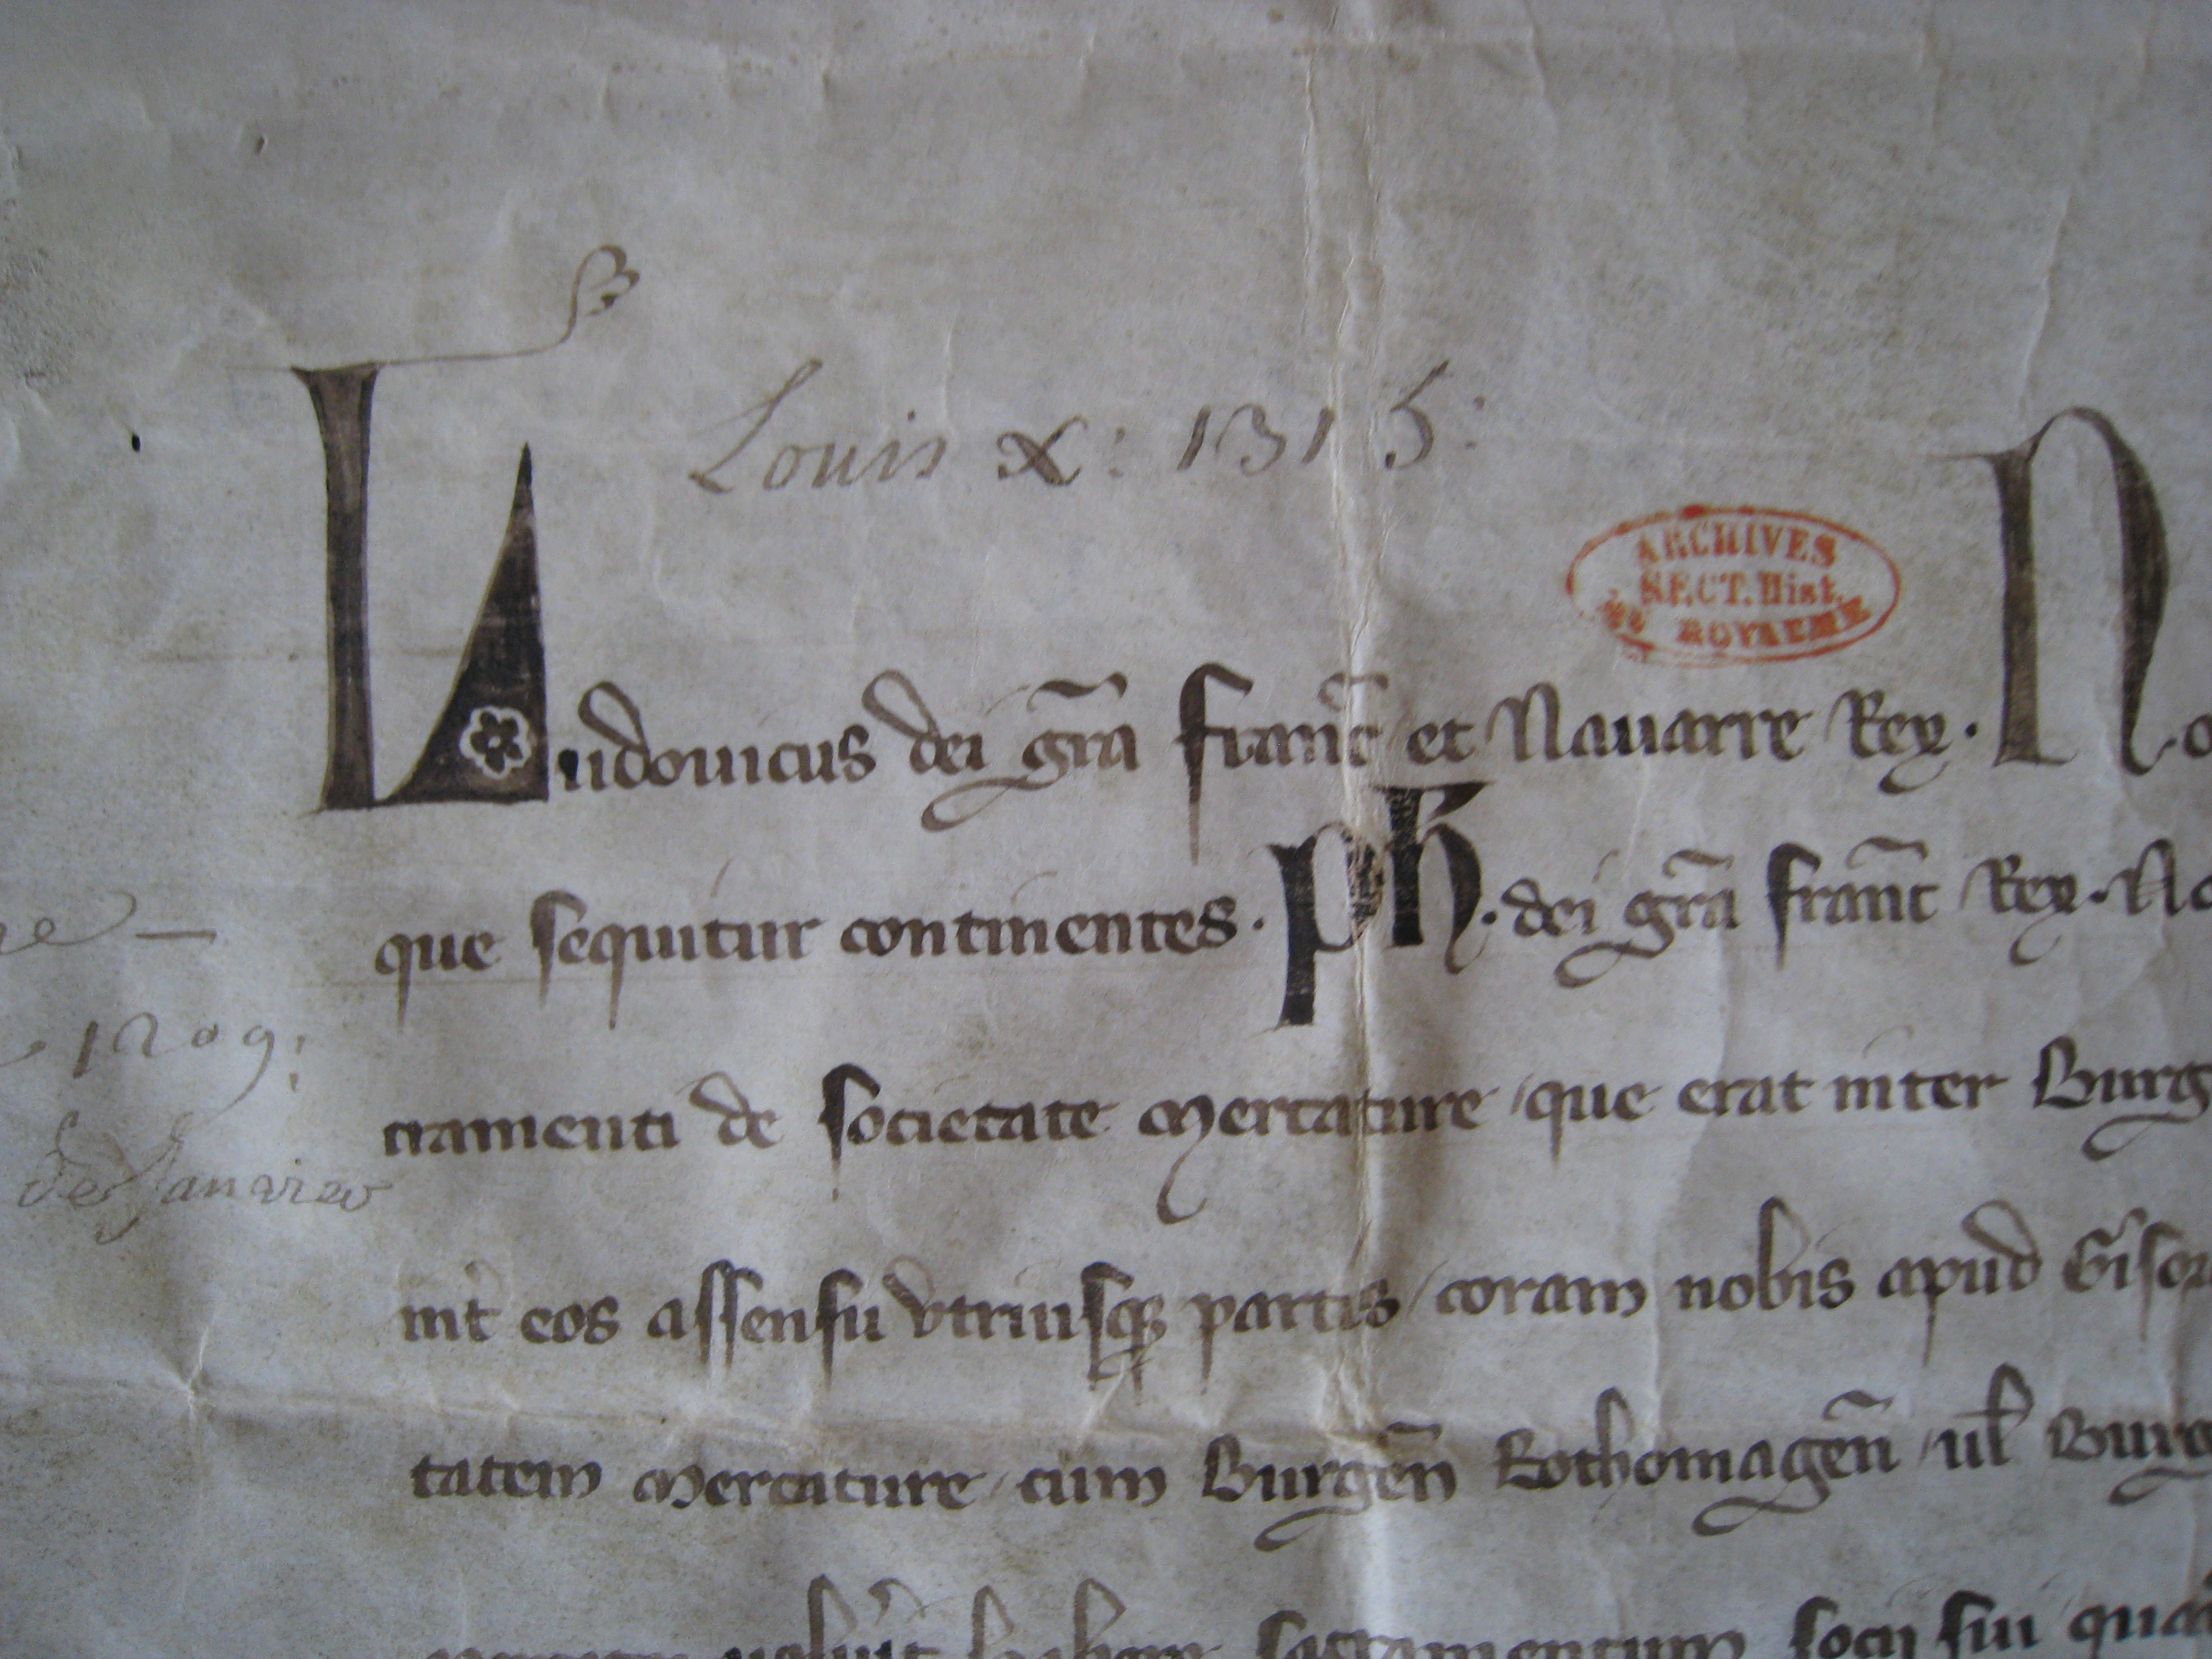 Louis x: 1315:
ARCHIVES
SECT. Hist.
DU ROYAUME
Ludouicus dei gr̃a franc̃ et Nauarre Rex. No
que sequitur continentes. ph̃. dei gr̃a franc̃ Rex. No
1209:
cramenti de societate Mercature / que erat inter Burg
de Januier
int̾ eos assensu vtriusq̢ partis / coram nobis apud Gisor
tatem Mercature / cum Burgen̄ Rothomagen̄ / ul̄ Burg
sacramentum socij sui qua